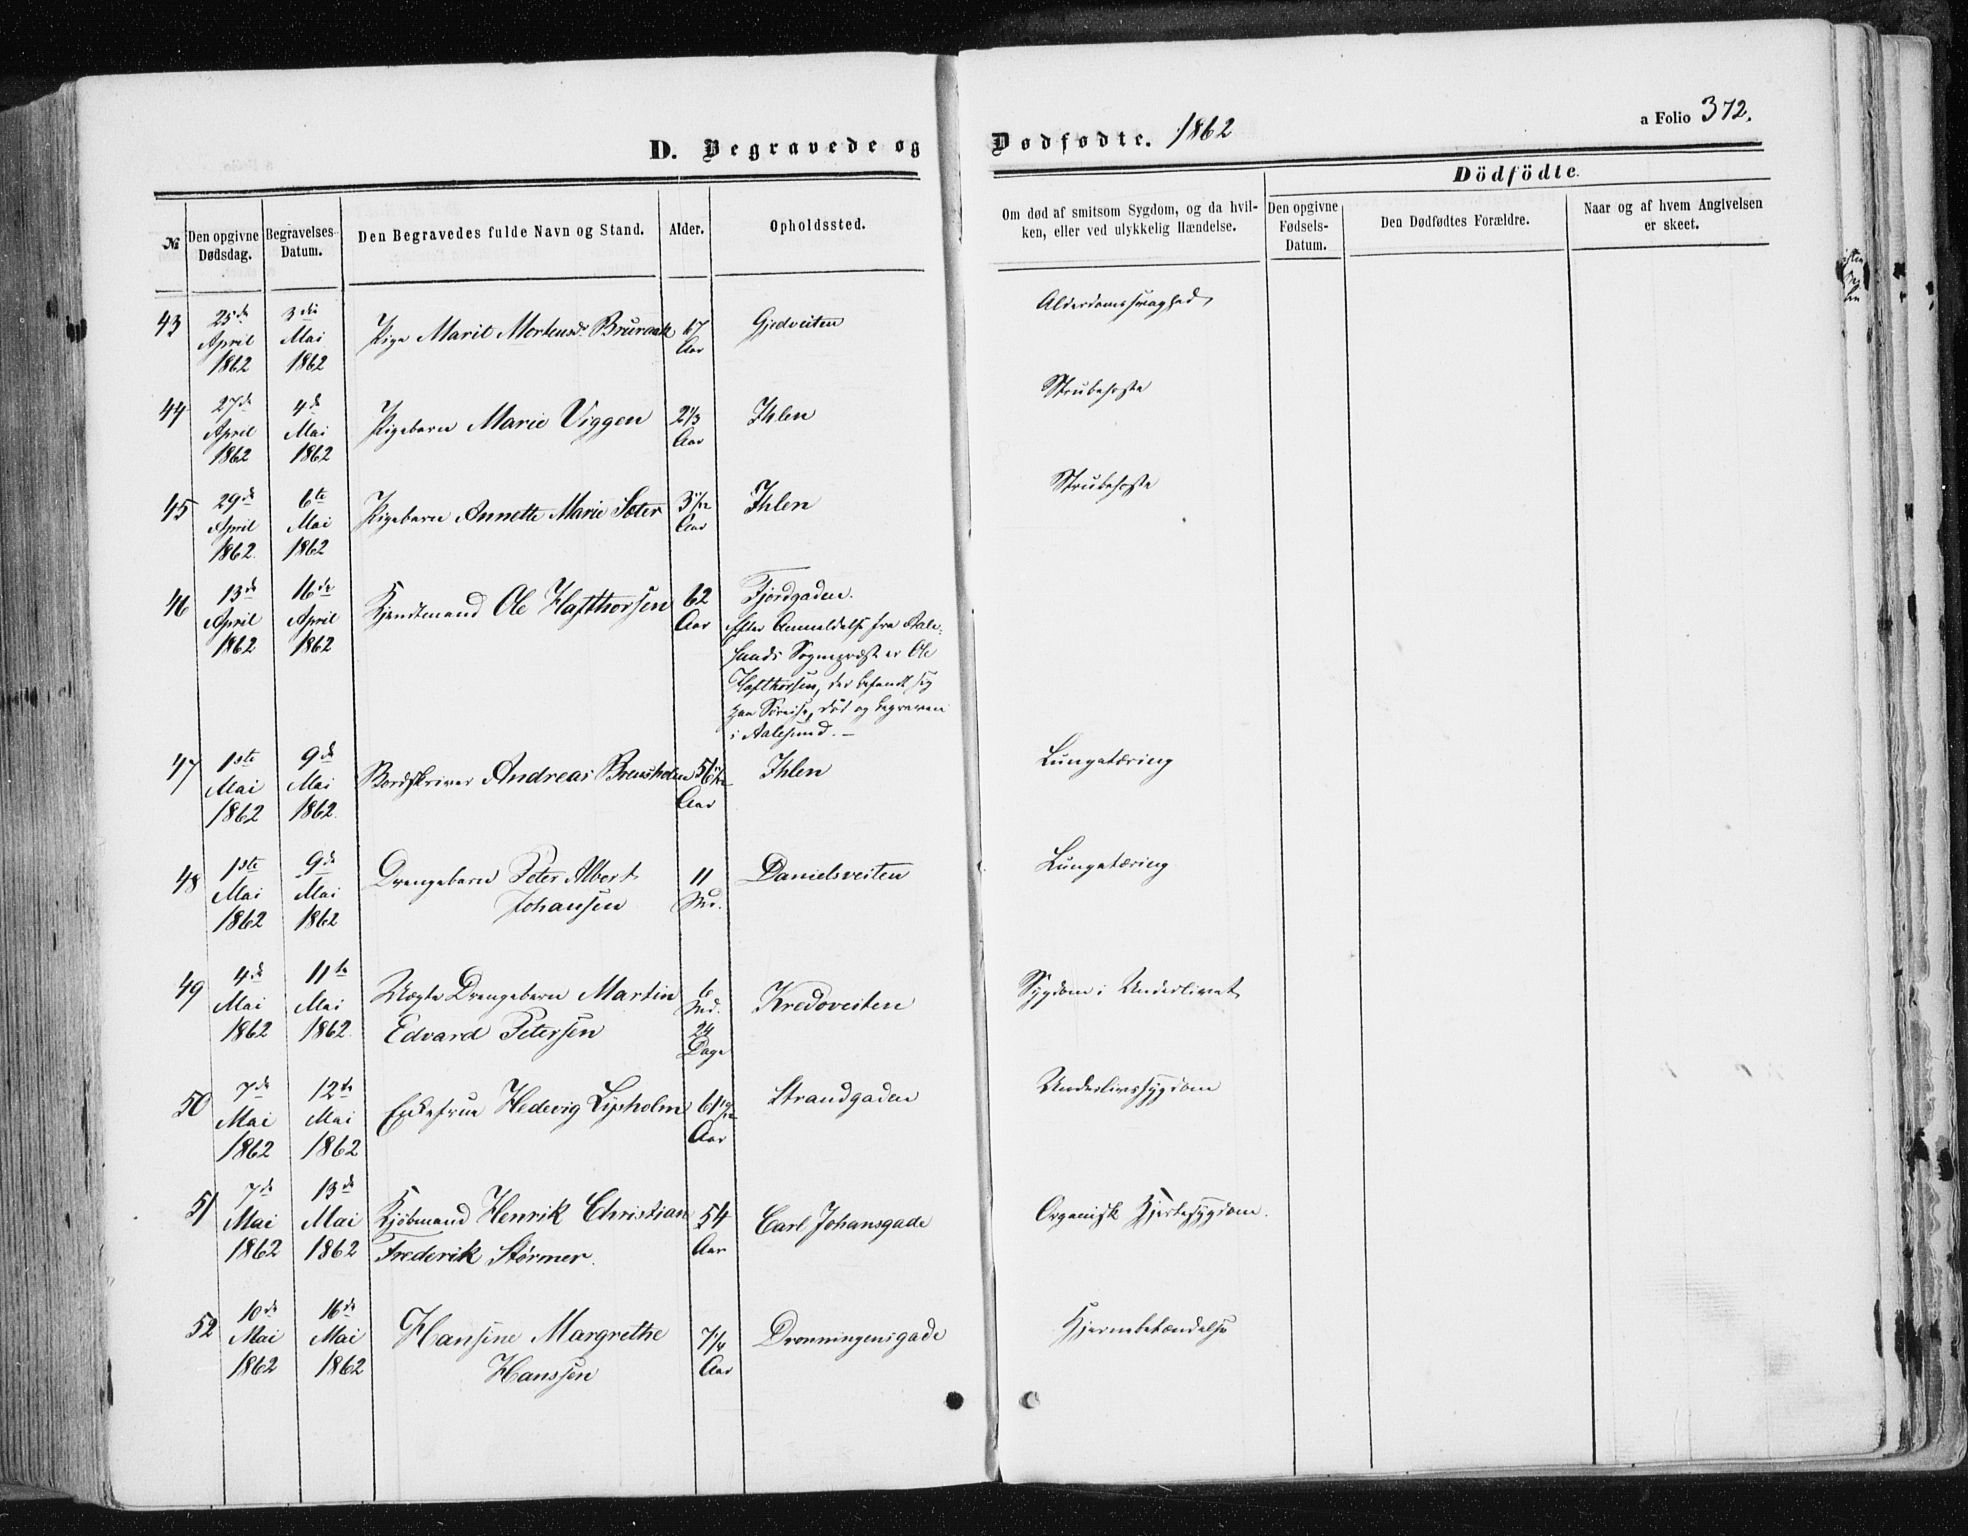 D. Begravede og Dødfødte. 1862
a Folio 372.
Dödfödte.
№
Den opgivne Dødsdag.
Begravelses-Datum.
Den Begravedes fulde Navn og Stand.
Alder.
Opholdssted.
Om død af smitsom Sygdom, og da hvil-
ken, eller ved ulykkelig Hændelse.
Den opgivne Fødsels-Datum.
Den Dødfødtes Forældre.
Naar og af hvem Angivelsen er skeet.
43 25de April 1862 3die Mai 1862 Pige Marit Mortensdr. Bruraak 67 Aar Gjedveiten Alderdomssvaghed
44 27de April 1862 4de Mai 1862 Pigebarn Marie Viggen 2 1/3 Aar Ihlen Strubehoste
45 29de April 1862. 6te Mai 1862 Pigebarn Annette Marie Sæter Aar Ihlen Strubehoste
46 13de April 1862 16de April 1862 Kjendtmand Ole Hafthorsen 62 Aar Fjordgaden.
Efter Anmeldelse fra Aale-
sunds Sognepræst er Ole
Hafthorsen, der befandt sig
paa Søreise, död og begraven
i Aalesund. –
47 1ste Mai 1862 9de Mai 1862. Bordskriver Andreas Brensholm Aar Ihlen Lungetæring
48 1ste Mai 1862 9de Mai 1862 Drengebarn Peter Albert
Johansen 11 Md. Danielsveiten Lungetæring
49 4de Mai 1862 11te Mai 1862. Uægte Drengebarn Martin
Edvard Petersen 6 Md. 24 Dage Kredoveiten Sygdom i Underlivet
50 7de Mai 1862 12te Mai 1862 Enkefrue Hedevig Lysholm Aar Strandgaden Underlivssygdom
51 7de Mai 1862 13de Mai 1862 Kjöbmand Henrik Christian
Frederik Størmer. 54 Aar Carl Johansgade Organisk Hjertesygdom.
52 10de Mai 1862 16de Mai 1862 Hansine Margrethe
Hanssen 7 1/4 Aar Dronningensgade Hjernebetændelse